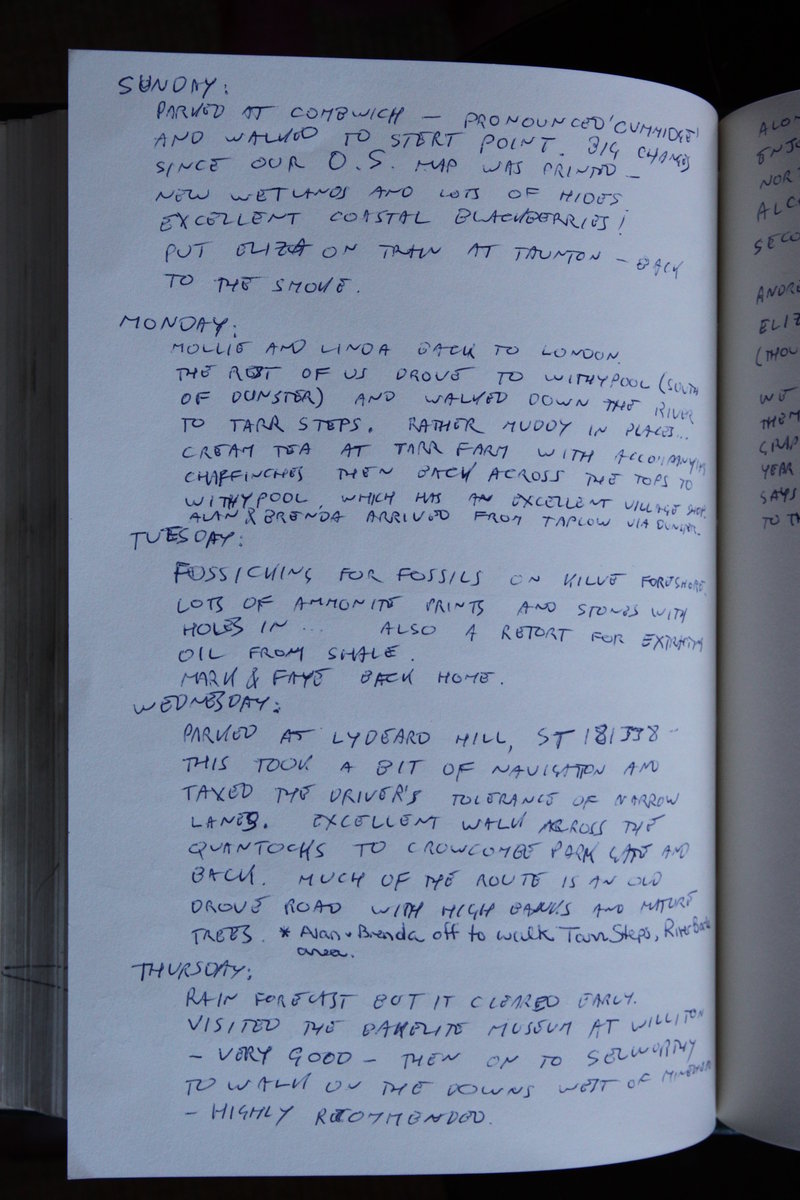 SUNDAY:
PARKED AT COMBWICH – PRONOUNCED 'CUMMIDGE'
AND WALKED TO STERT POINT. BIG CHANGES
SINCE OUR O.S. MAP WAS PRINTED –
NEW WETLANDS AND LOTS OF HIDES
EXCELLENT COASTAL BLACKBERRIES!
PUT ELIZA ON TRAIN AT TAUNTON – BACK
TO THE SMOKE.
MONDAY:
MOLLIE AND LINDA BACK TO LONDON.
THE REST OF US DROVE TO WITHYPOOL (SOUTH
OF DUNSTER) AND WALKED DOWN THE RIVER
TO TARR STEPS. RATHER MUDDY IN PLACES...
CREAM TEA AT TARR FARM WITH ACCOMPANYING
CHAFFINCHES THEN BACK ACROSS THE TOPS TO
WITHYPOOL, WHICH HAS AN EXCELLENT VILLAGE SHOP.
ALAN & BRENDA ARRIVED FROM TAPLOW VIA DUNSTER.
TUESDAY:
FOSSICKING FOR FOSSILS ON KILVE FORESHORE.
LOTS OF AMMONITE PRINTS AND STONES WITH
HOLES IN ... ALSO A RETORT FOR EXTRACTING
OIL FROM SHALE.
MARK & FAYE BACK HOME.
WEDNESDAY:
PARKED AT LYDEARD HILL, ST 181338 –
THIS TOOK A BIT OF NAVIGATION AND
TAXED THE DRIVER'S TOLERANCE OF NARROW
LANES. EXCELLENT WALK ACROSS THE
QUANTOCKS TO CROWCOMBE PARK GATE AND
BACK. MUCH OF THE ROUTE IS AN OLD
DROVE ROAD WITH HIGH BANKS AND MATURE
TREES. * Alan + Brenda off to walk Tarr Steps, River Barle
area.
THURSDAY:
RAIN FORECAST BUT IT CLEARED EARLY.
VISITED THE BAKELITE MUSEUM AT WILLITON
– VERY GOOD – THEN ON TO SELWORTHY
TO WALK ON THE DOWNS WEST OF MINEHEAD
– HIGHLY RECOMMENDED.
ENJO
NOR
ALC
SECO
ANDRE
ELIZ
(THOU
WE
THEM
GRAP
YEAR
SAYS
TO TH